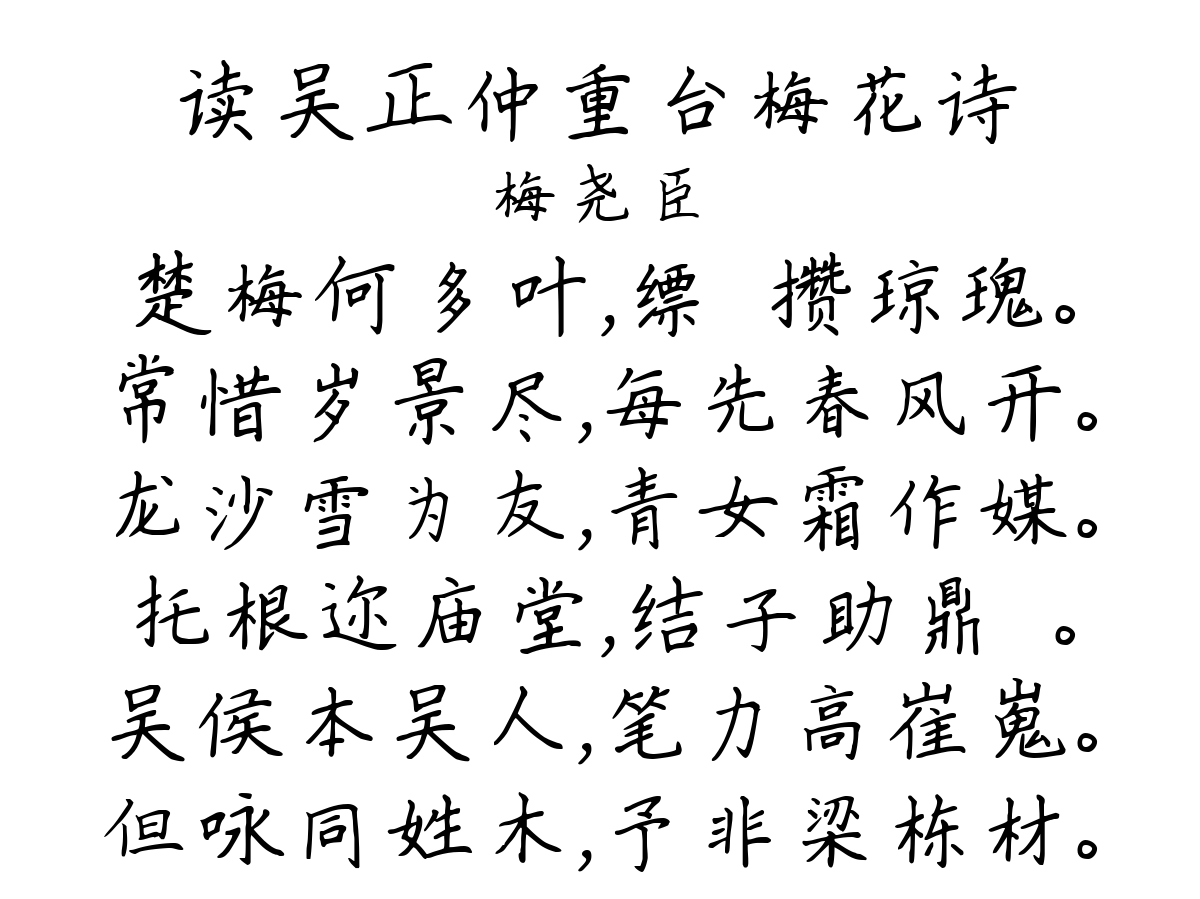 读吴正仲重台梅花诗
梅尧臣
楚梅何多叶,缥 攒琼瑰。
常惜岁景尽,每先春风开。
龙沙雪为友,青女霜作媒。
托根迩庙堂,结子助鼎 。
吴侯本吴人,笔力高崔嵬。
但咏同姓木,予非梁栋材。